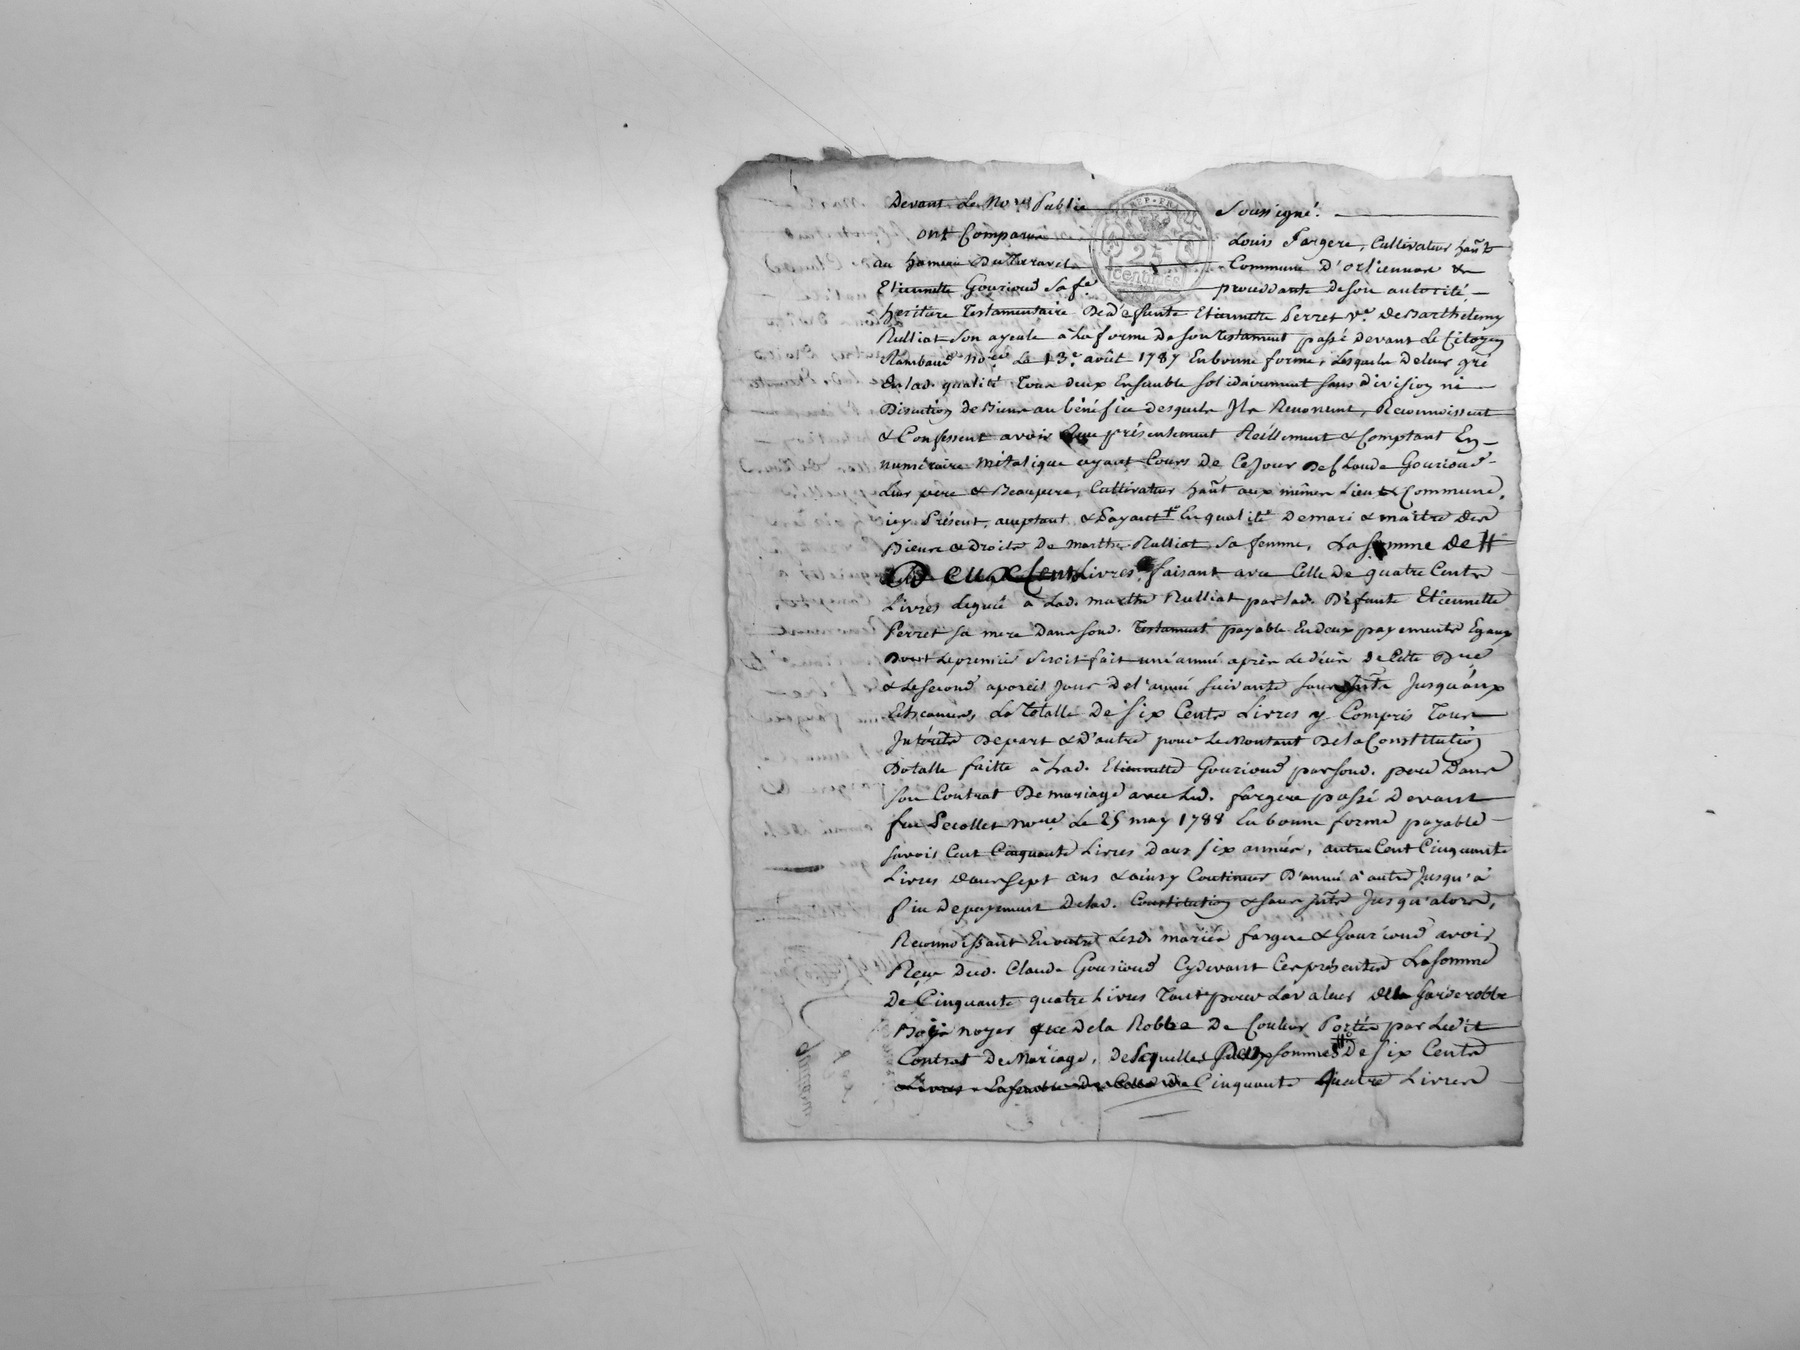 Devant Le No.re Public soussigné.
REP. FRA.
25
centimes
ont Comparu Louis fargere, Cultivateur ha.nt
au hameau Du Commune d'orlienas &
Etiennette Gourioud sa f.e procedante de son autorité,
heritiere Testamentaire De défunte Etiennette Perret v.e de Barthelemy
Rulliat son ayeule à la forme de son Testament passé devant Le Citoyen
Rambaud no.re Le 13.e août 1787 En bonne forme, Lesquels de leur gré
En lad. qualité Tous deux Ensemble solidairement sans division ni
Discution de Biens au bénéfice desquels Ils Renoncent, Reconnoissent
& Confessent avoir Reçu présentement Réellement & Comptant En
numéraire métalique ayant Cours de Ce Jour De Claude Gourioud
Leur pere & Beaupere, Cultivateur ha.nt aux mêmes Lieu & Commune,
icy Présent, acceptant & Payant En qualité De mari & maitre des
Biens & Droits De marthe Rulliat sa femme, La somme de
Deux Cent Livres, faisant avec Celle De quatre Cents
Livres legué à Lad. marthe Rulliat par lad. Défunte Etiennette
Perret sa mere Dans sond. Testament payable En deux payements Egaux
Dont Le premier seroit fait une année après Le décès de Cette Dre
& Le second a pareil Jour De l'année suivante sans Jnts Jusqu'aux
Echeances, La Totalle De six Cents Livres y Compris Tous
Intérêts De part & D'autre pour Le montant De la Constitution
Dotalle faitte à Lad. Etiennette Gourioud par sond. pere Dans
son Contrat De mariage avec Led. fargere passé Devant
feu Decollet no.re Le 25 may 1788 En bonne forme payable
savoir Cent Cinquante Livres Dans six années, autres Cent Cinquante
Livres dans sept ans & ainsy Continuer D'année à autre Jusqu'à
fin De payement De lad. Constitution & sans Jnts Jusqu'alors,
Reconnoissant En outre Lesd. mariés fargere & Gourioud avoir
Reçu Dud. Claude Gourioud Cy devant Ces présentes La somme
De Cinquante quatre Livres Tant pour La valeur De la garderobbe
Bois noyer que de la Robbe De Couleur Portée par Ledit
Contrat De Mariage, Desquelles Deux sommes De six Cents
Cinquante Quatre Livres